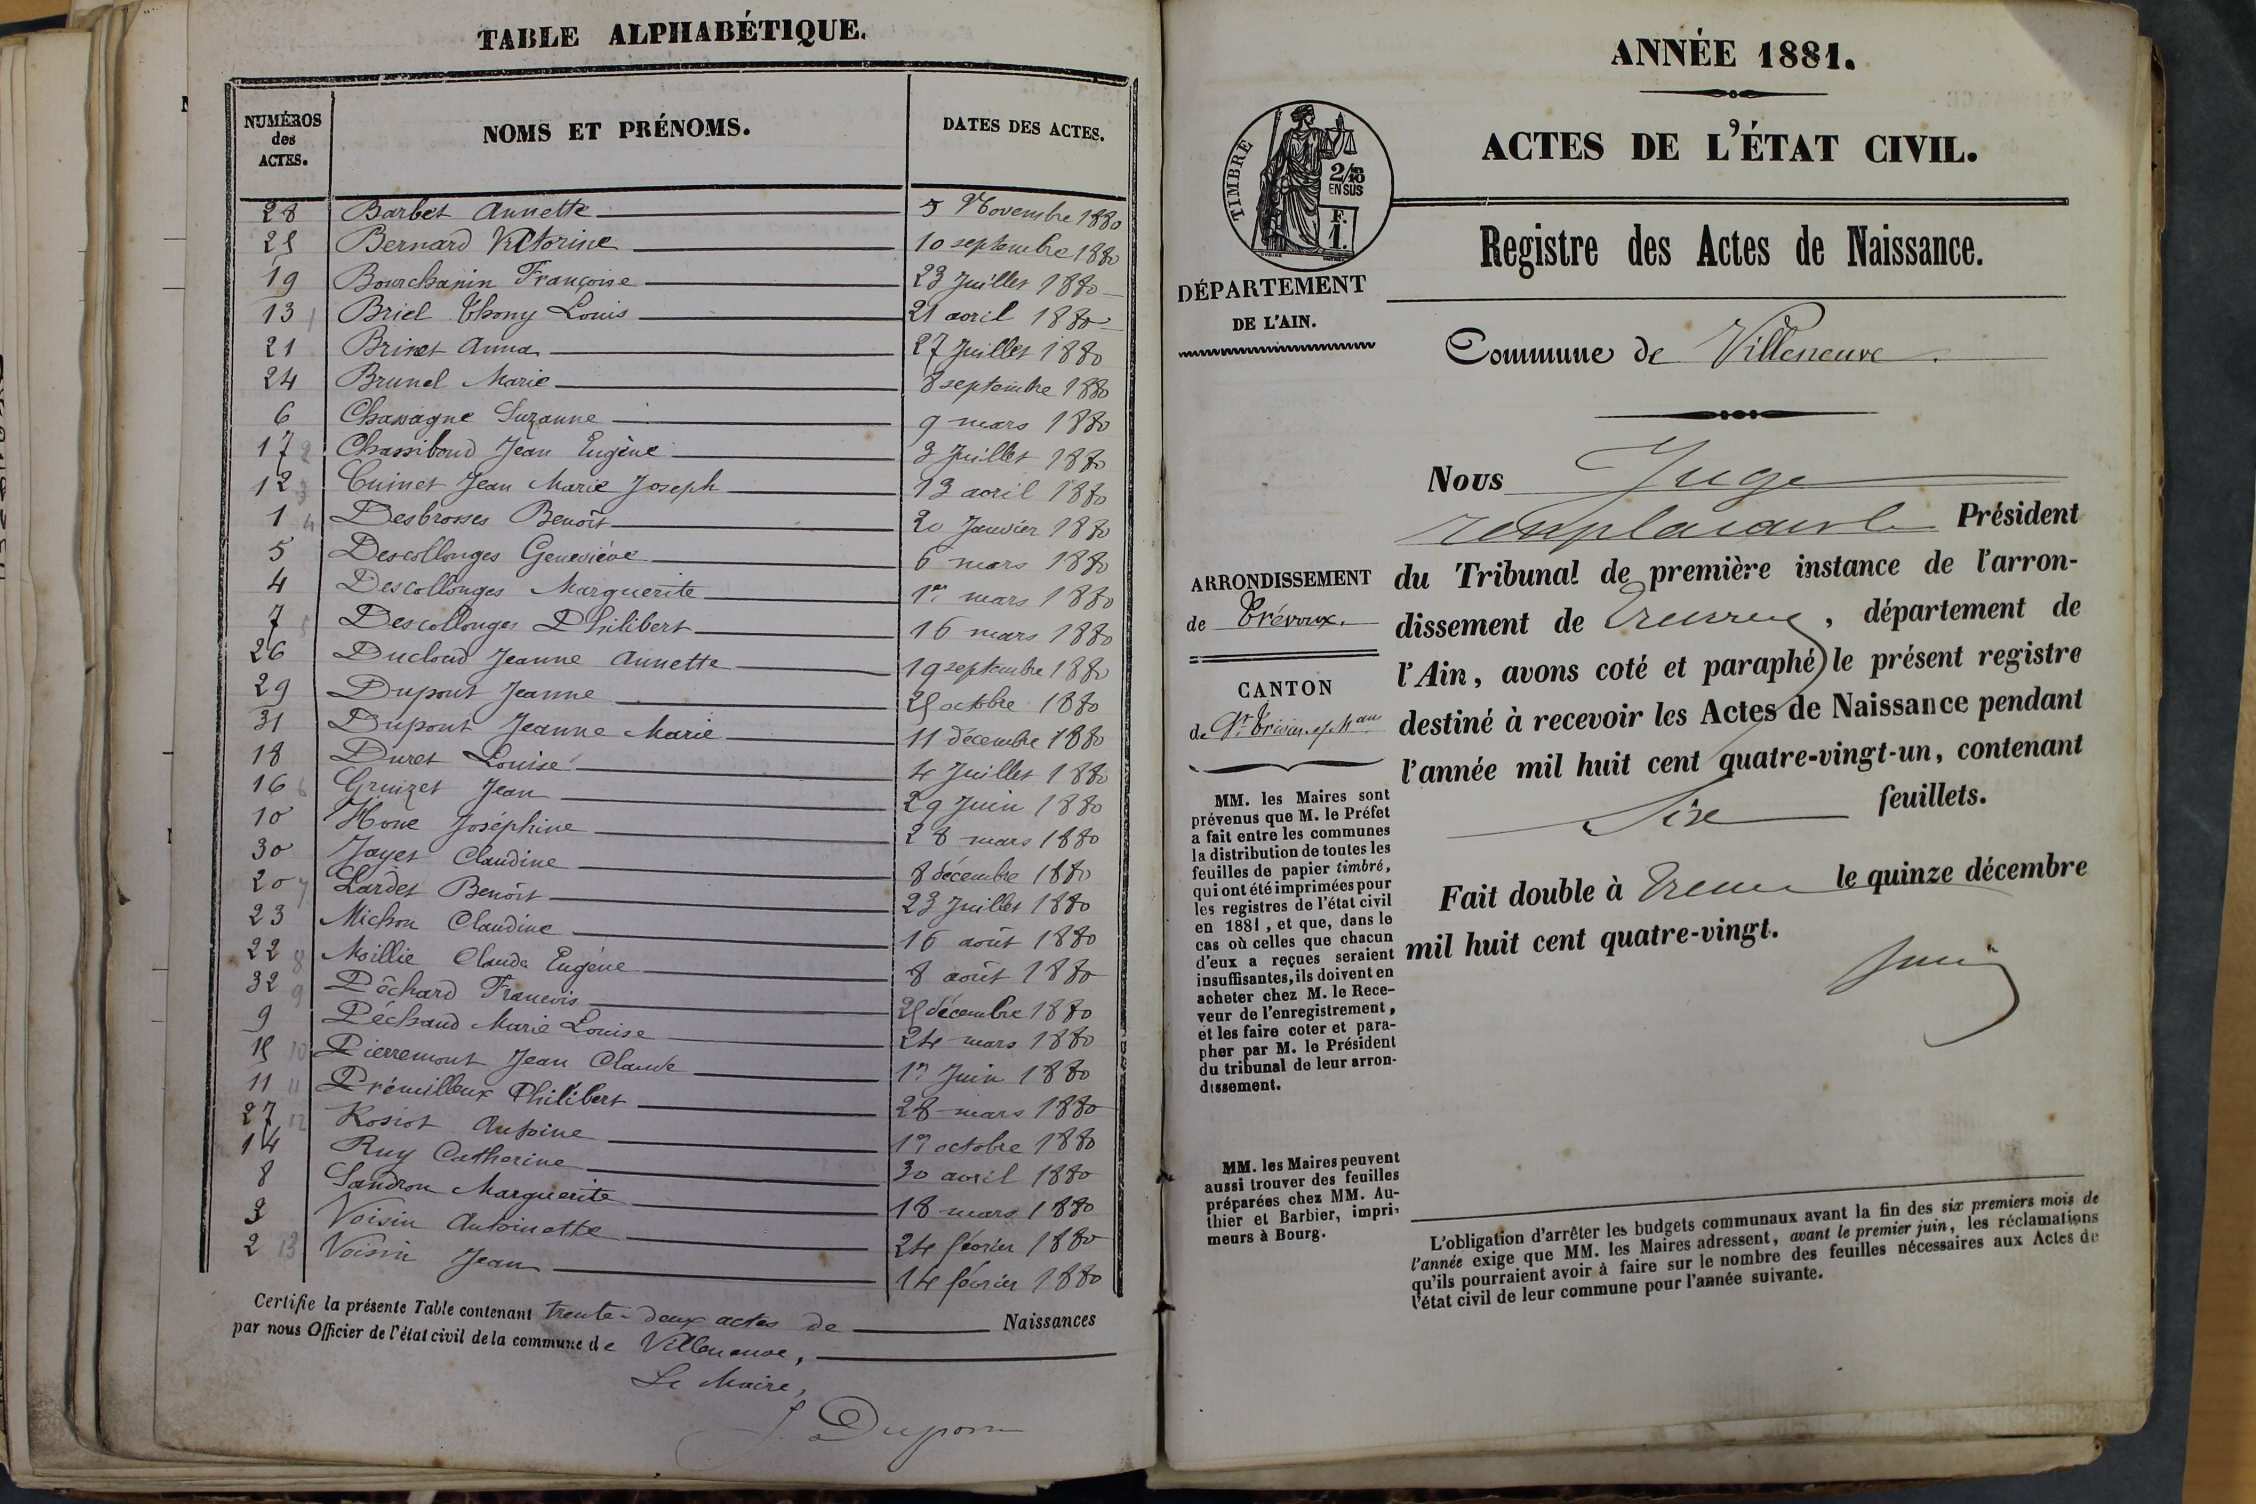 TABLE ALPHABÉTIQUE.
NUMÉROS des ACTES. NOMS ET PRÉNOMS. DATES DES ACTES.
28 Barbet Annette 5 Novembre 1880
25 Bernard Victorine 10 septembre 1880
19 Bourchanin Françoise 23 Juillet 1880
13 1 Briel Thony Louis 21 avril 1880
21 Brinet Anna 27 Juillet 1880
24 Brunel Marie 8 septembre 1880
6 Chavagne Suzanne 9 mars 1880
17 2 Chassiboud Jean Eugène 3 Juillet 1880
12 3 Cuinet Jean Marie Joseph 13 avril 1880
1 4 Desbrosses Benoît 20 Janvier 1880
5 Descollonges Geneviève 6 mars 1880
4 Descollonges Marguerite 1er mars 1880
7 5 Descollonges Philibert 16 mars 1880
26 Ducloud Jeanne Annette 19 septembre 1880
29 Dupont Jeanne 25 octobre 1880
31 Dupont Jeanne Marie 11 décembre 1880
18 Duret Louise 4 Juillet 1880
16 6 Gruizet Jean 29 Juin 1880
10 Joséphine 28 mars 1880
30 Jayet Claudine 8 décembre 1880
20 7 Lardet Benoît 23 Juillet 1880
23 Michon Claudine 16 août 1880
22 8 Moillie Claude Eugène 8 août 1880
32 9 Pôchard Francois 25 décembre 1880
9 Péchaud Marie Louise 24 mars 1880
15 10 Pierremont Jean Claude 1er Juin 1880
11 11 Prémilleux Philibert 28 mars 1880
27 12 Rosiot Antoine 1er octobre 1880
14 Ruy Catherine 30 avril 1880
8 Sandron Marguerite 18 mars 1880
3 Voisin Antoinette 24 février 1880
2 13 Voisin Jean 14 février 1880
Certifie la présente Table contenant trente-deux actes de Naissances
par nous Officier de l'état civil de la commune de Villeneuve,
Le Maire,
J. Dupont
ANNÉE 1881.
ACTES DE L'ÉTAT CIVIL.
TIMBRE
2/10 EN SUS
F. 1.
Registre des Actes de Naissance.
DÉPARTEMENT
DE L'AIN.
Commune de Villeneuve.
Nous Juge
remplaçant Président
du Tribunal de première instance de l'arron-
dissement de Trévoux, département de
l'Ain, avons coté et paraphé le présent registre
destiné à recevoir les Actes de Naissance pendant
l'année mil huit cent quatre-vingt-un, contenant
Six feuillets.
Fait double à Trévoux le quinze décembre
mil huit cent quatre-vingt.
ARRONDISSEMENT
de Trévoux.
CANTON
de St. Trivier
MM. les Maires sont
prévenus que M. le Préfet
a fait entre les communes
la distribution de toutes les
feuilles de papier timbré,
qui ont été imprimées pour
les registres de l'état civil
en 1881, et que, dans le
cas où celles que chacun
d'eux a reçues seraient
insuffisantes, ils doivent en
acheter chez M. le Rece-
veur de l'enregistrement,
et les faire coter et para-
pher par M. le Président
du tribunal de leur arron-
dissement.
MM. les Maires peuvent
aussi trouver des feuilles
préparées chez MM. Au-
thier et Barbier, impri-
meurs à Bourg.
L'obligation d'arrêter les budgets communaux avant la fin des six premiers mois de
l'année exige que MM. les Maires adressent, avant le premier juin, les réclamations
qu'ils pourraient avoir à faire sur le nombre des feuilles nécessaires aux Actes de
l'état civil de leur commune pour l'année suivante.